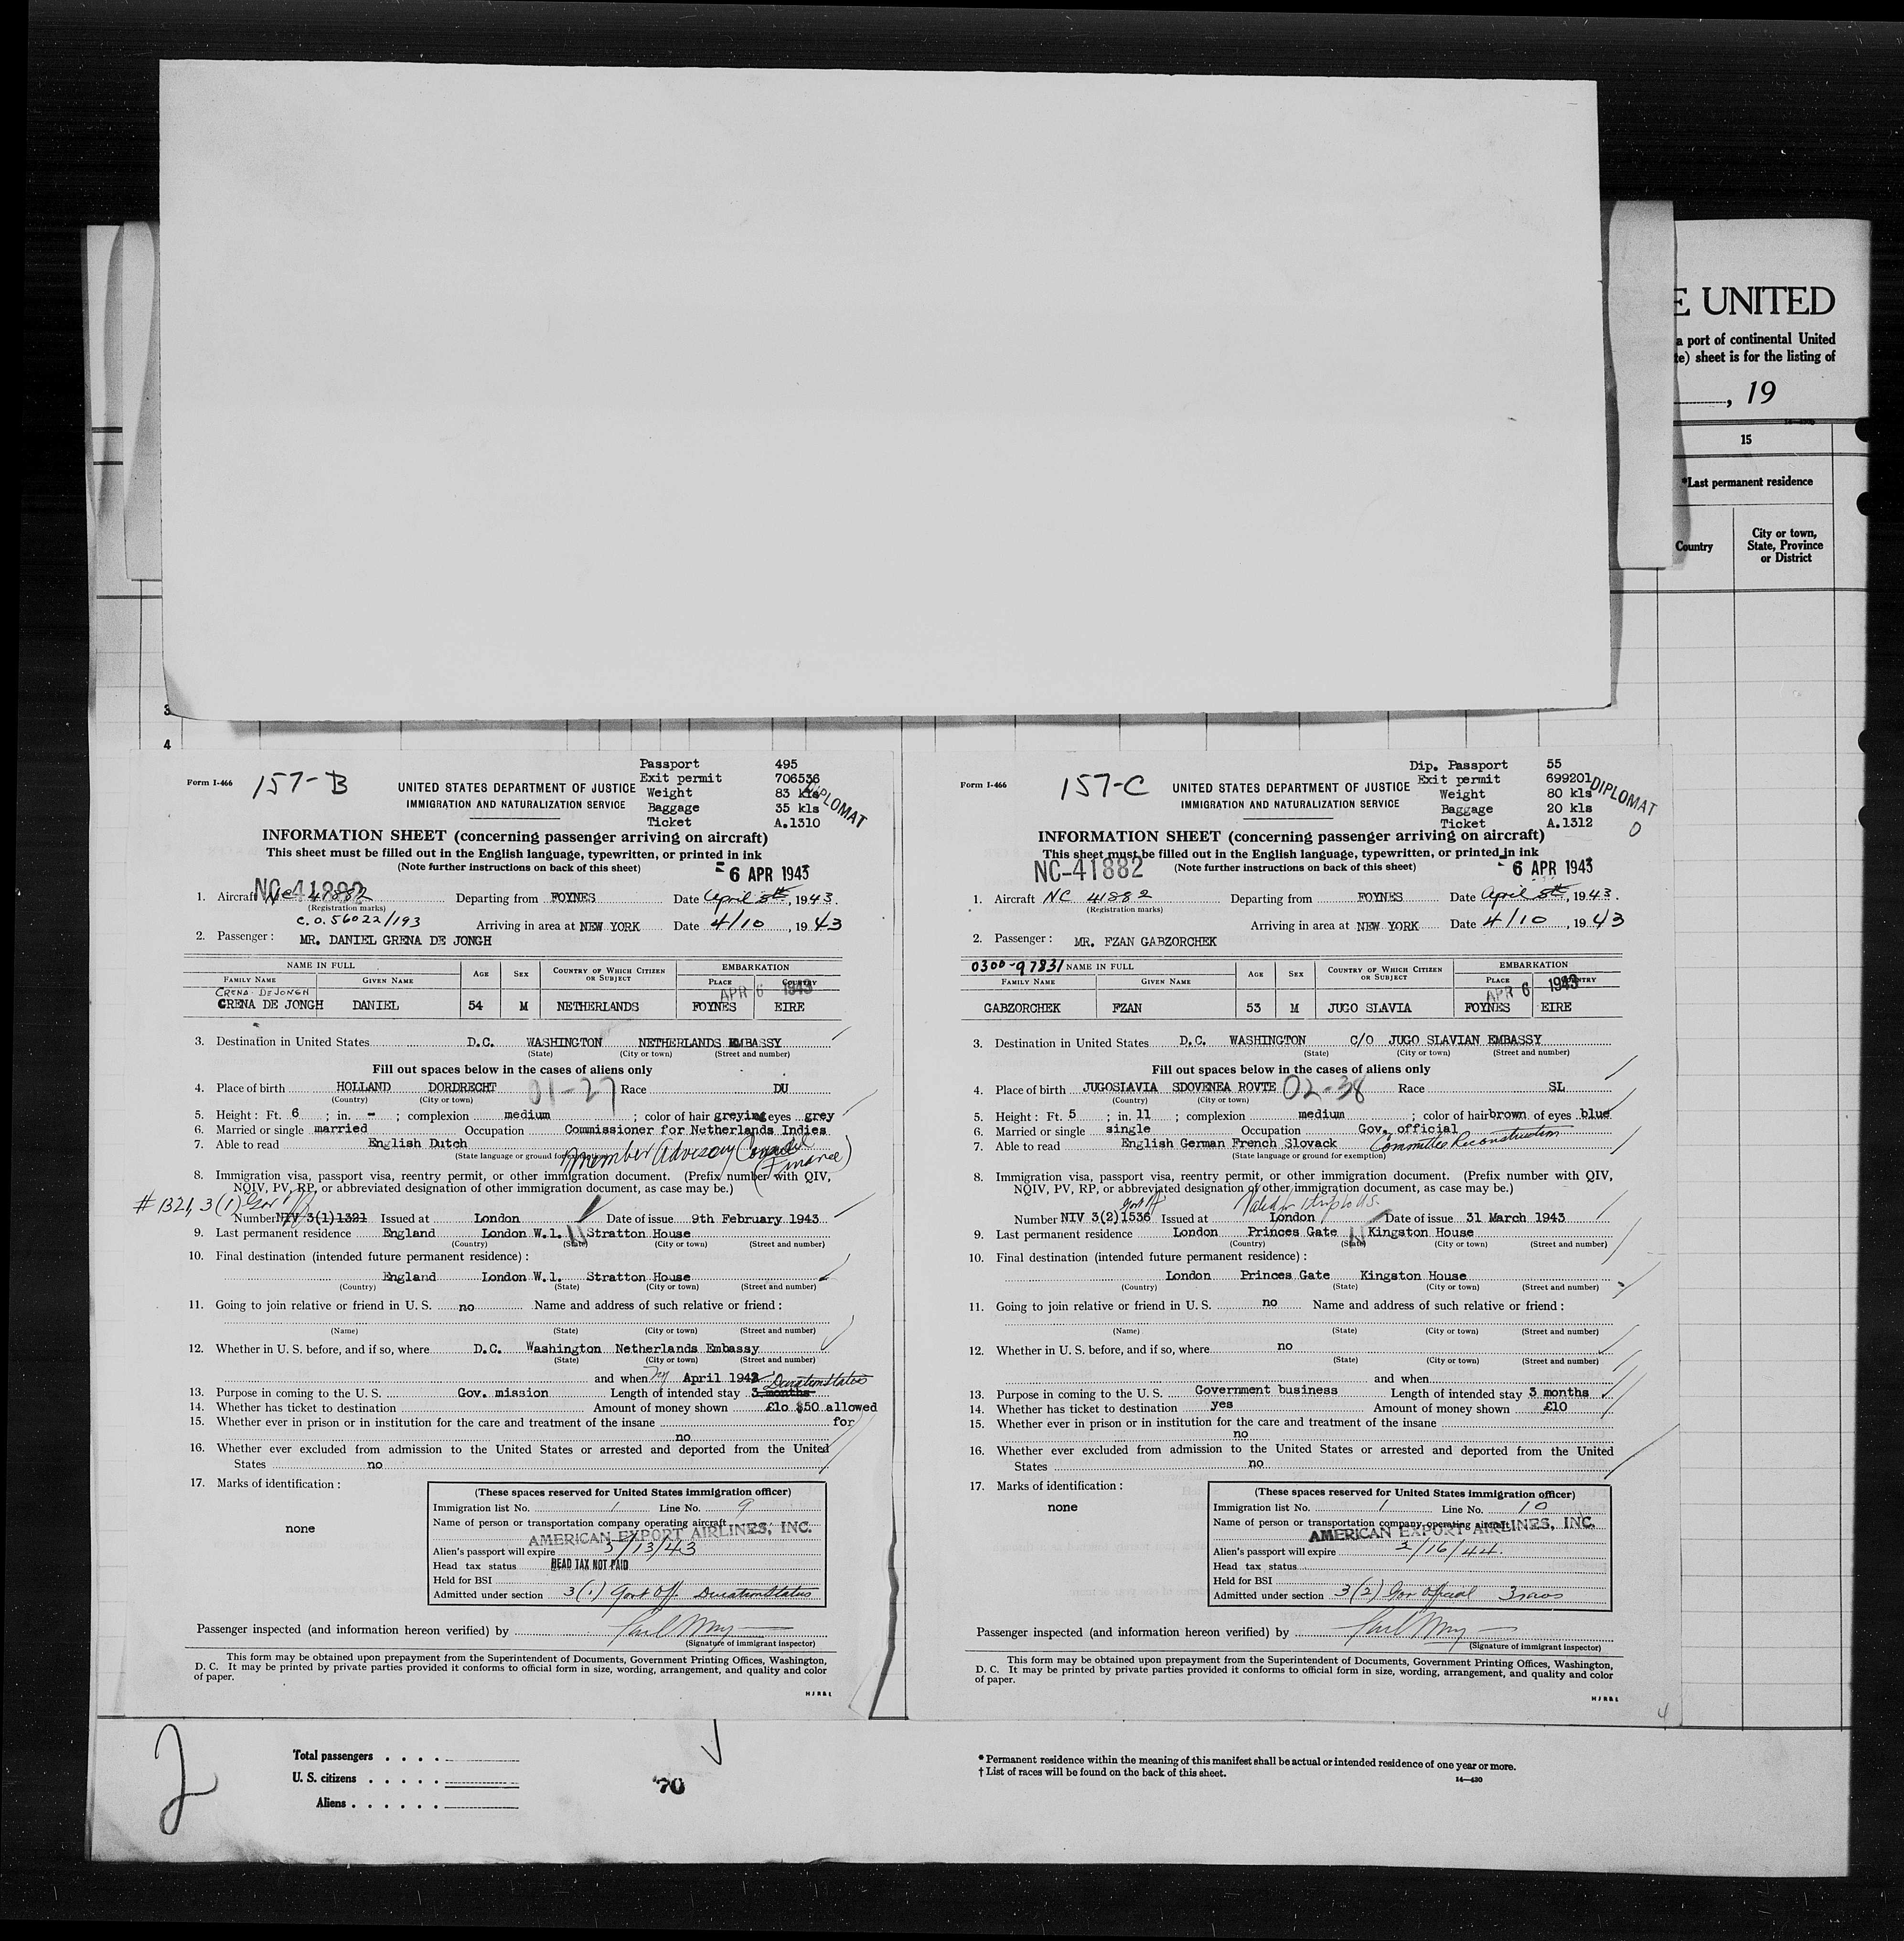 E UNITED
a port of continental United
te) sheet is for the listing of
, 19
15
*Last permanent residence
Country
City or town,
State, Province
or District
3
4
Form I-466
157-B
UNITED STATES DEPARTMENT OF JUSTICE
IMMIGRATION AND NATURALIZATION SERVICE
Passport 495
Exit permit 706536
Weight 83 kls
Baggage 35 kls
Ticket A.1310
DIPLOMAT
INFORMATION SHEET (concerning passenger arriving on aircraft)
This sheet must be filled out in the English language, typewritten, or printed in ink
(Note further instructions on back of this sheet)
6 APR 1943
NC-41882
1. Aircraft NC 41882 Departing from FOYNES Date April 5th, 1943.
(Registration marks)
C.O. 56022/193
Arriving in area at NEW YORK Date 4/10, 1943
2. Passenger: MR. DANIEL GRENA DE JONGH
NAME IN FULL AGE SEX COUNTRY OF WHICH CITIZEN OR SUBJECT EMBARKATION
FAMILY NAME GIVEN NAME PLACE COUNTRY
CRENA-DEJONGH APR 6 1943
GRENA DE JONGH DANIEL 54 M NETHERLANDS FOYNES EIRE
3. Destination in United States D.C. WASHINGTON NETHERLANDS EMBASSY
(State) (City or town) (Street and number)
Fill out spaces below in the cases of aliens only
4. Place of birth HOLLAND DORDRECHT 01-27 Race DU
(Country) (City or town)
5. Height: Ft. 6 ; in. - ; complexion medium ; color of hair greying eyes grey
6. Married or single married Occupation Commissioner for Netherlands Indies
7. Able to read English Dutch
(State language or ground for exemption)
member Advisory Council
(Finance)
8. Immigration visa, passport visa, reentry permit, or other immigration document. (Prefix number with QIV,
NQIV, PV, RP, or abbreviated designation of other immigration document, as case may be.)
#1321, 3(1) Gov Off
Number NIV 3(1)1321 Issued at London Date of issue 9th February 1943
9. Last permanent residence England London W.1. Stratton House
(Country) (State) (City or town) (Street and number)
10. Final destination (intended future permanent residence):
England London W.1. Stratton House
(Country) (State) (City or town) (Street and number)
11. Going to join relative or friend in U. S. no Name and address of such relative or friend:
(Name) (State) (City or town) (Street and number)
12. Whether in U. S. before, and if so, where D.C. Washington Netherlands Embassy
(State) (City or town) (Street and number)
and when April 1942
Duration Status
13. Purpose in coming to the U. S. Gov. mission Length of intended stay 3 months
14. Whether has ticket to destination Amount of money shown £10 $50 allowed
15. Whether ever in prison or in institution for the care and treatment of the insane for
no
16. Whether ever excluded from admission to the United States or arrested and deported from the United
States no
17. Marks of identification:
none
(These spaces reserved for United States immigration officer)
Immigration list No. 1 Line No. 9
Name of person or transportation company operating aircraft
AMERICAN EXPORT AIRLINES, INC.
Alien's passport will expire 3/13/43
Head tax status HEAD TAX NOT PAID
Held for BSI
Admitted under section 3(1) Govt Off. Duration Status
Passenger inspected (and information hereon verified) by
(Signature of immigrant inspector)
This form may be obtained upon prepayment from the Superintendent of Documents, Government Printing Offices, Washington,
D. C. It may be printed by private parties provided it conforms to official form in size, wording, arrangement, and quality and color
of paper.
HJR&L
Form I-466
157-C
UNITED STATES DEPARTMENT OF JUSTICE
IMMIGRATION AND NATURALIZATION SERVICE
Dip. Passport 55
Exit permit 699201
Weight 80 kls
Baggage 20 kls
Ticket A.1312
DIPLOMAT
0
INFORMATION SHEET (concerning passenger arriving on aircraft)
This sheet must be filled out in the English language, typewritten, or printed in ink
(Note further instructions on back of this sheet)
NC-41882
6 APR 1943
1. Aircraft NC 41882 Departing from FOYNES Date April 5th, 1943.
(Registration marks)
Arriving in area at NEW YORK Date 4/10, 1943
2. Passenger: MR. FZAN GABZORCHEK
0300-97831
NAME IN FULL AGE SEX COUNTRY OF WHICH CITIZEN OR SUBJECT EMBARKATION
FAMILY NAME GIVEN NAME PLACE COUNTRY
APR 6 1943
GABZORCHEK FZAN 53 M JUGO SLAVIA FOYNES EIRE
3. Destination in United States D.C. WASHINGTON C/O JUGO SLAVIAN EMBASSY
(State) (City or town) (Street and number)
Fill out spaces below in the cases of aliens only
4. Place of birth JUGOSLAVIA SDOVENEA ROVTE 02-38 Race SL
(Country) (City or town)
5. Height: Ft. 5 ; in. 11 ; complexion medium ; color of hair brown of eyes blue
6. Married or single single Occupation Gov. official
7. Able to read English German French Slovack Committee Reconstruction
(State language or ground for exemption)
8. Immigration visa, passport visa, reentry permit, or other immigration document. (Prefix number with QIV,
NQIV, PV, RP, or abbreviated designation of other immigration document, as case may be.)
Govt Off
Number NIV 3(2)1536 Issued at London Date of issue 31 March 1943
9. Last permanent residence London Princes Gate Kingston House
(Country) (State) (City or town) (Street and number)
10. Final destination (intended future permanent residence):
London Princes Gate Kingston House
(Country) (State) (City or town) (Street and number)
11. Going to join relative or friend in U. S. no Name and address of such relative or friend:
(Name) (State) (City or town) (Street and number)
12. Whether in U. S. before, and if so, where no
(State) (City or town) (Street and number)
and when
13. Purpose in coming to the U. S. Government business Length of intended stay 3 months
14. Whether has ticket to destination yes Amount of money shown £10
15. Whether ever in prison or in institution for the care and treatment of the insane
no
16. Whether ever excluded from admission to the United States or arrested and deported from the United
States no
17. Marks of identification:
none
(These spaces reserved for United States immigration officer)
Immigration list No. 1 Line No. 10
Name of person or transportation company operating aircraft
AMERICAN EXPORT AIRLINES, INC.
Alien's passport will expire 2/16/44.
Head tax status
Held for BSI
Admitted under section 3(2) Gov Official 3 mos
Passenger inspected (and information hereon verified) by
(Signature of immigrant inspector)
This form may be obtained upon prepayment from the Superintendent of Documents, Government Printing Offices, Washington,
D. C. It may be printed by private parties provided it conforms to official form in size, wording, arrangement, and quality and color
of paper.
HJR&L
4
2
Total passengers
U. S. citizens
Aliens
70
* Permanent residence within the meaning of this manifest shall be actual or intended residence of one year or more.
† List of races will be found on the back of this sheet.
14—430